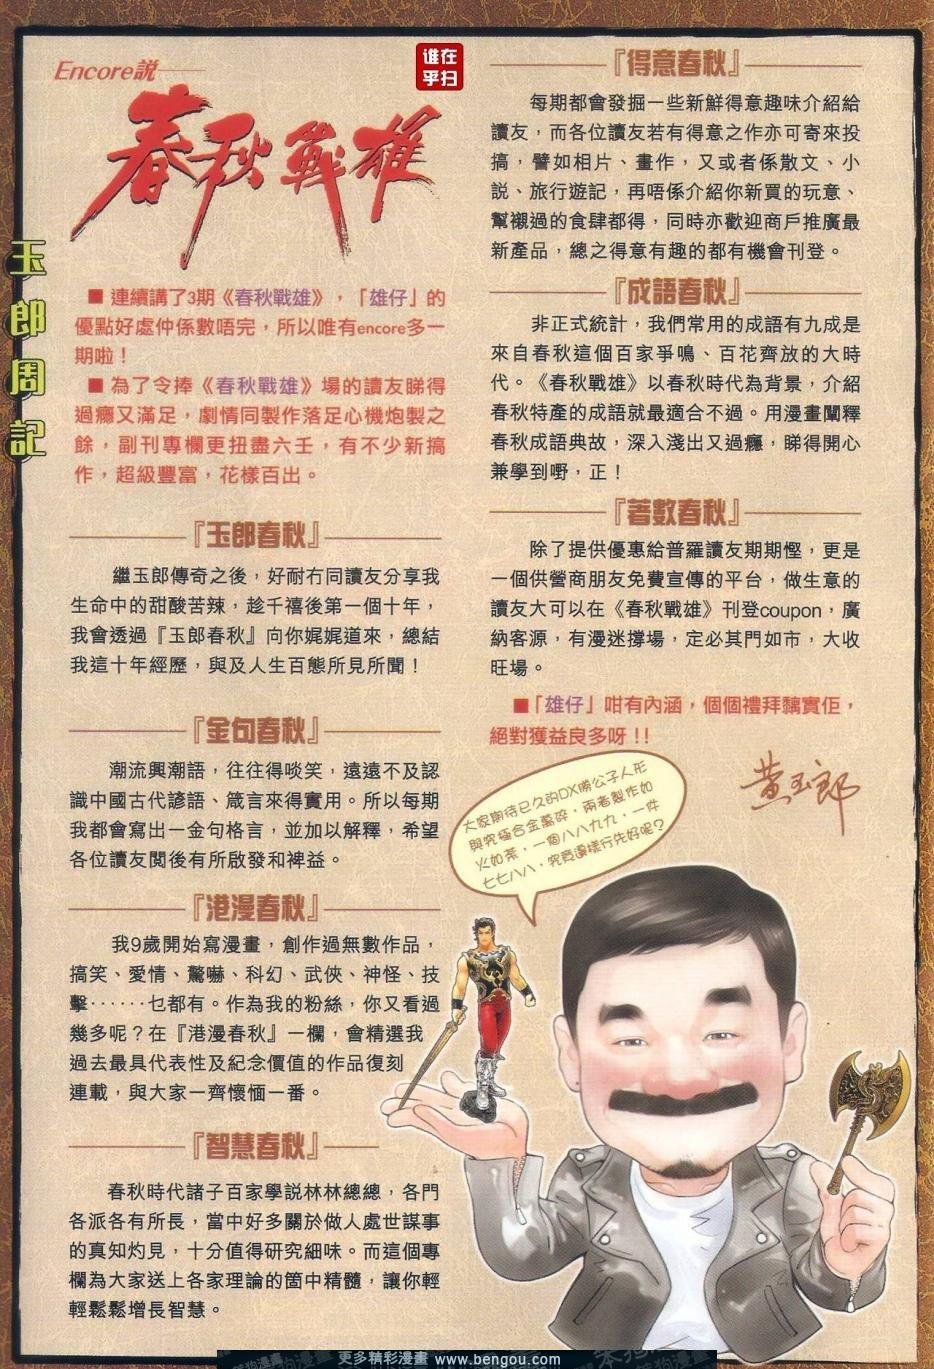 Encore說
春秋戰雄
谁在
乎扫
玉郎周記
■ 連續講了3期《春秋戰雄》，「雄仔」的
優點好處仲係數唔完，所以唯有encore多一
期啦！
■ 為了令捧《春秋戰雄》場的讀友睇得
過癮又滿足，劇情同製作落足心機炮製之
餘，副刊專欄更扭盡六壬，有不少新搞
作，超級豐富，花樣百出。
『玉郎春秋』
繼玉郎傳奇之後，好耐冇同讀友分享我
生命中的甜酸苦辣，趁千禧後第一個十年，
我會透過『玉郎春秋』向你娓娓道來，總結
我這十年經歷，與及人生百態所見所聞！
『金句春秋』
潮流興潮語，往往得啖笑，遠遠不及認
識中國古代諺語、箴言來得實用。所以每期
我都會寫出一金句格言，並加以解釋，希望
各位讀友閱後有所啟發和裨益。
『港漫春秋』
我9歲開始寫漫畫，創作過無數作品，
搞笑、愛情、驚嚇、科幻、武俠、神怪、技
擊⋯⋯乜都有。作為我的粉絲，你又看過
幾多呢？在『港漫春秋』一欄，會精選我
過去最具代表性及紀念價值的作品復刻
連載，與大家一齊懷愐一番。
『智慧春秋』
春秋時代諸子百家學說林林總總，各門
各派各有所長，當中好多關於做人處世謀事
的真知灼見，十分值得研究細味。而這個專
欄為大家送上各家理論的箇中精髓，讓你輕
輕鬆鬆增長智慧。
『得意春秋』
每期都會發掘一些新鮮得意趣味介紹給
讀友，而各位讀友若有得意之作亦可寄來投
搞，譬如相片、畫作，又或者係散文、小
説、旅行遊記，再唔係介紹你新買的玩意、
幫襯過的食肆都得，同時亦歡迎商戶推廣最
新產品，總之得意有趣的都有機會刊登。
『成語春秋』
非正式統計，我們常用的成語有九成是
來自春秋這個百家爭鳴、百花齊放的大時
代。《春秋戰雄》以春秋時代為背景，介紹
春秋特產的成語就最適合不過。用漫畫闡釋
春秋成語典故，深入淺出又過癮，睇得開心
兼學到嘢，正！
『著數春秋』
除了提供優惠給普羅讀友期期慳，更是
一個供營商朋友免費宣傳的平台，做生意的
讀友大可以在《春秋戰雄》刊登coupon，廣
納客源，有漫迷撐場，定必其門如市，大收
旺場。
■「雄仔」咁有內涵，個個禮拜黐實佢，
絕對獲益良多呀！！
黃玉郎
大家期待已久的DX勝公子人形
與究極合金萬碎，兩者製作如
火如荼，一個八八九九，一件
七七八八，究竟邊樣行先好呢？
更多精彩漫畫 www.bengou.com
笨狗漫畫